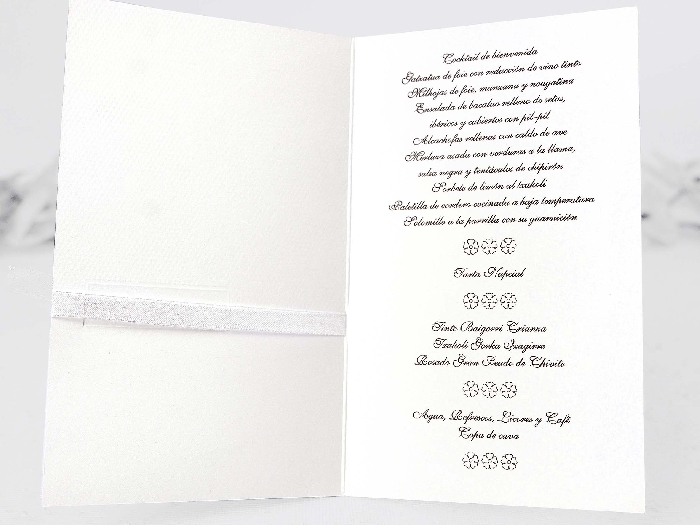 Cocktail de bienvenida
de foie con reducción de vino tinto
Milhojas de foie, manzana y nougatina
Ensalada de bacalao relleno de setas,
ibéricos y cubiertos con pil-pil
Alcachofas rellenas con caldo de ave
Merluza asada con verduras a la llama,
salsa negra y tentáculos de chipirón
Sorbete de limón al txakoli
Paletilla de cordero cocinada a baja temperatura
Solomillo a la parrilla con su guarnición
Tarta Nupcial
Tinto Baigorri Crianza
Txakoli Gorka Izagirre
Rosado Gran Feudo de Chivite
Agua, Refrescos, Licores y Café
Copa de cava